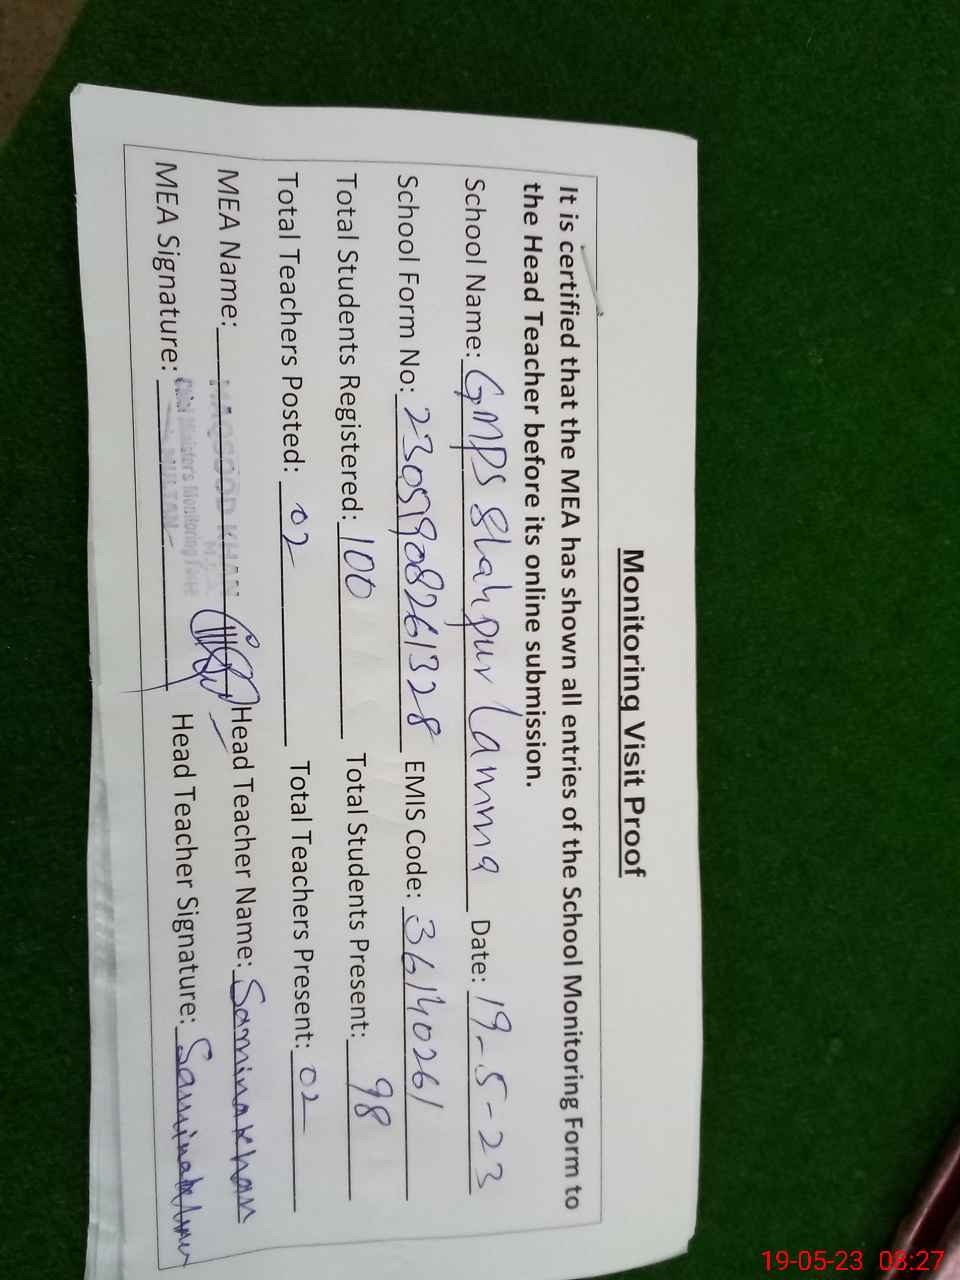 Monitoring Visit Proof
It is certified that the MEA has shown all entries of the School Monitoring Form to
the Head Teacher before its online submission.
School Name: GMPS Shahpur Lamma Date: 19-5-23
School Form No: 23051908261328 EMIS Code: 36140261
Total Students Registered: 100 Total Students Present: 98
Total Teachers Posted: 02 Total Teachers Present: 02
MEA Name: MAQSOOD KHAN Head Teacher Name: Saminakhan
Chief Minister's Monitoring Force
MULTAN
MEA Signature: Head Teacher Signature: Saminakhan
19-05-23 08:27